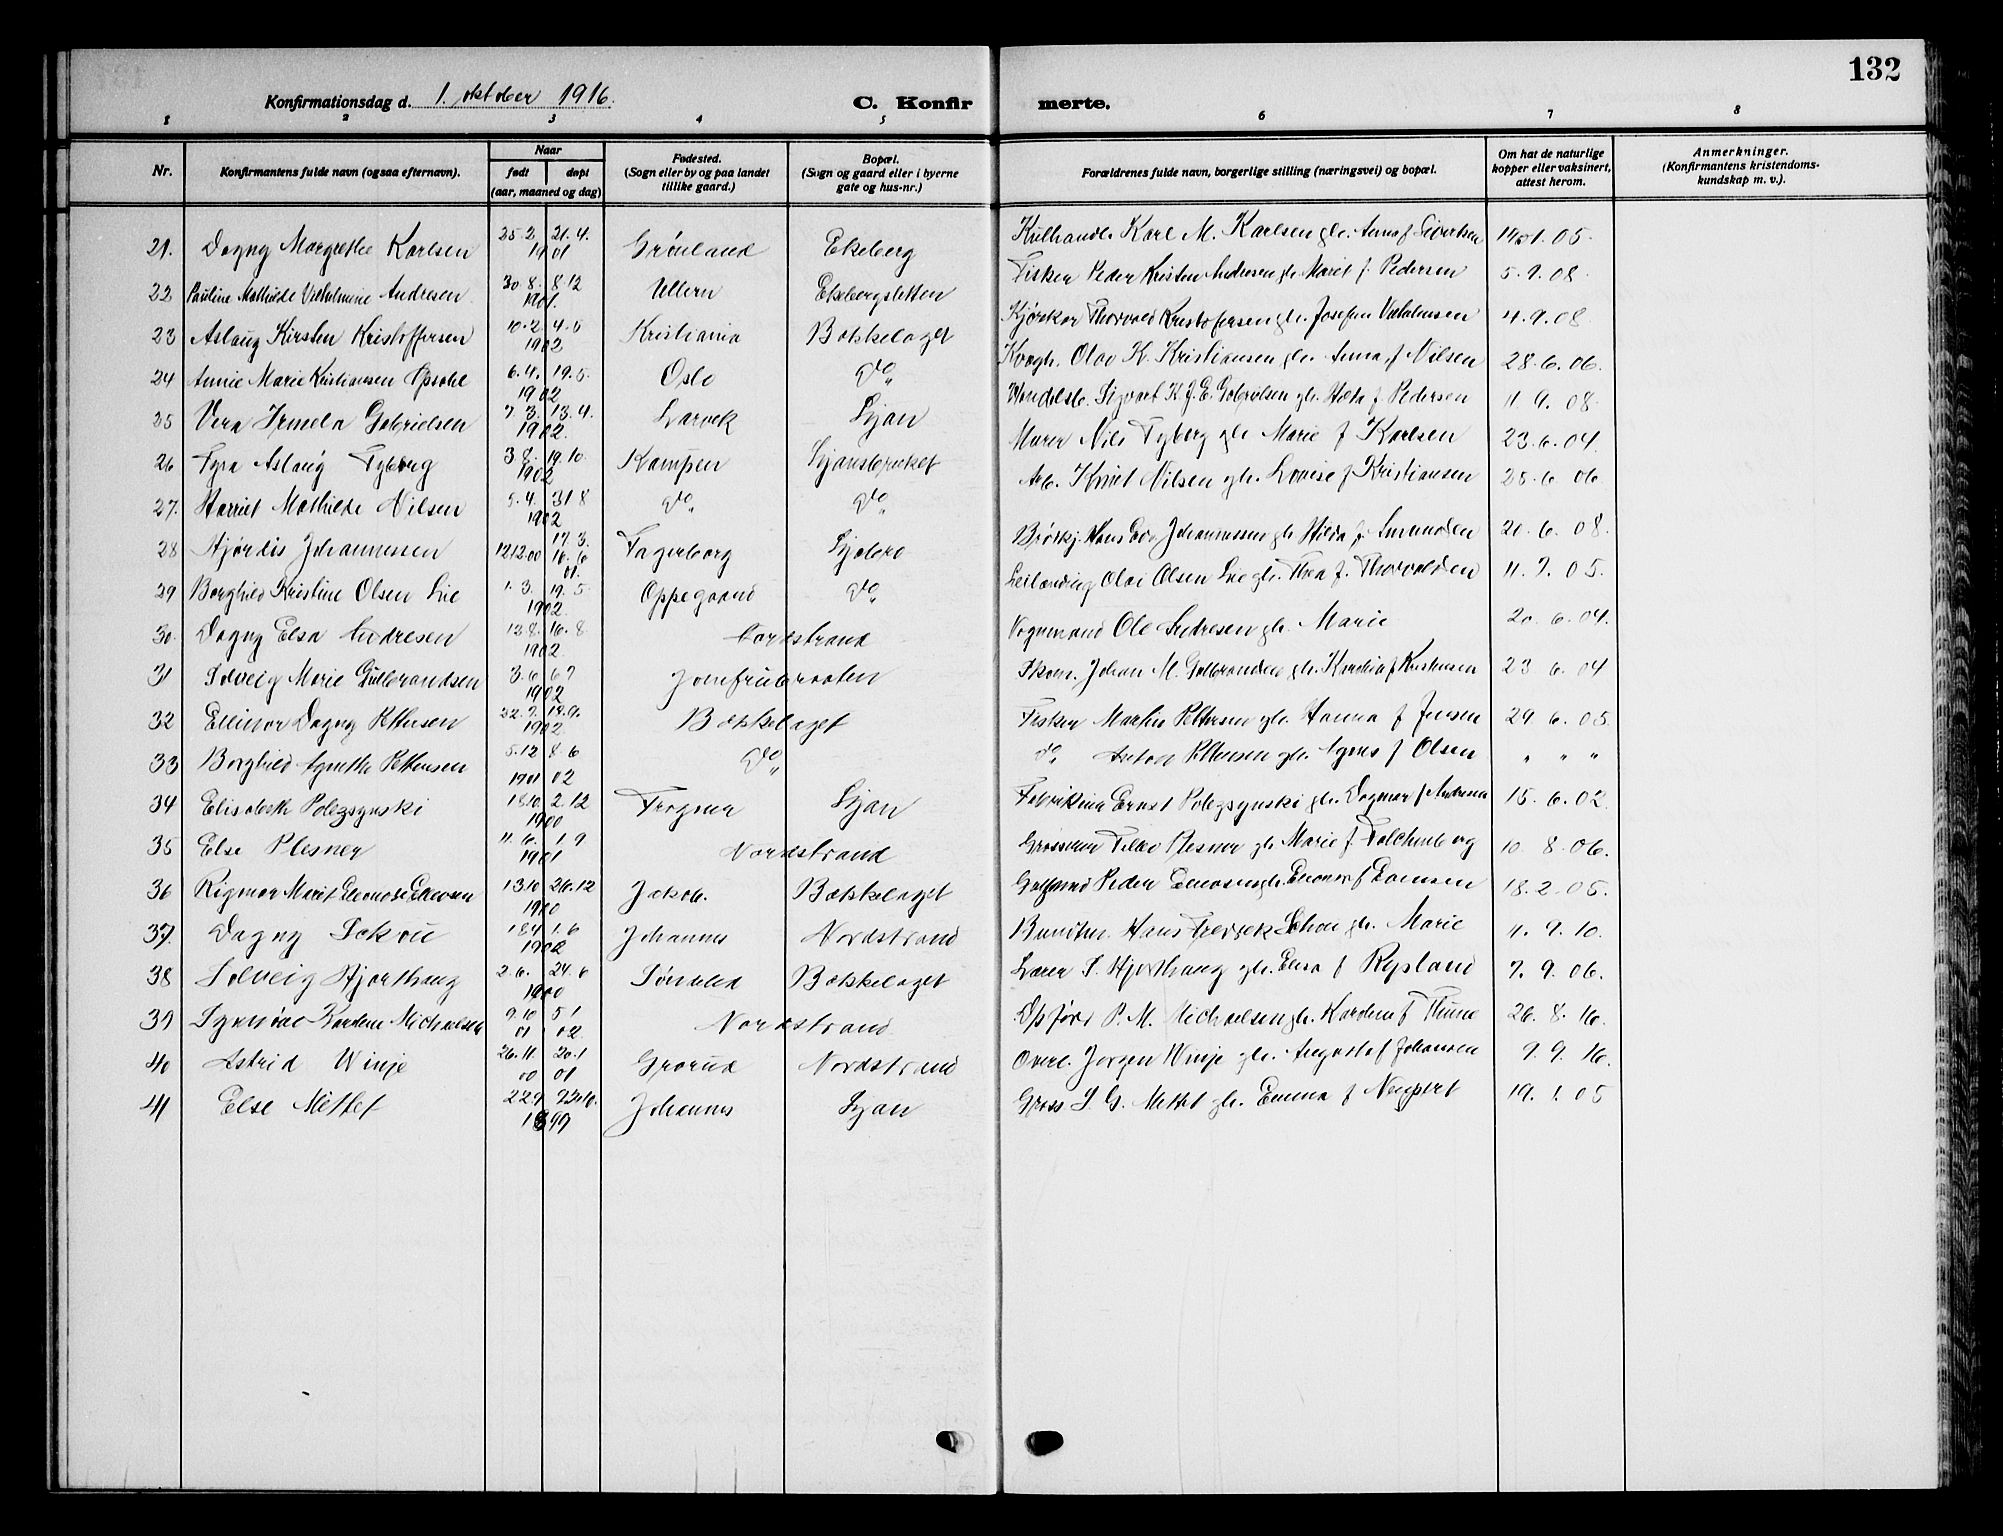 132
Konfirmationsdag d. 1. oktober 1916.
C. Konfir merte.
1 2 3 4 5 6 7 8
Nr. Konfirmantens fulde navn (ogsaa efternavn). Naar født døpt (aar, maaned og dag) Fødested. (Sogn eller by og paa landet tillike gaard.) Bopæl. (Sogn og gaard eller i byerne gate og hus-nr.) Forældrenes fulde navn, borgerlige stilling (næringsvei) og bopæl. Om hat de naturlige kopper eller vaksinert, attest herom. Anmerkninger. (Konfirmantens kristendoms-kundskap m. v.).
21. Dagny Margrethe Karlsen 25.2 21.4. 1901 Grønland Ekeberg Kulhandl. Karl M. Karlsen glr. Anna f Sivertsen 1.05.
22 Pauline Mathilde Vilhelmine Andresen 30.8. 8.12 1901. Ullern Ekebergsletten Fisker Peder Kristen Andresen glr. Maret f. Pedersen 5.9.08.
23 Aslaug Kirsten Kristoffersen 10.2 4.5 1902 Kristiania Bækkelaget Kjørekar Thorvald Kristofersen glr. Josefine Vilhelmsen 4.9.08.
24 Annie Marie Kristiansen Opsahl 6.4. 19.5. 1902 Oslo Do Olav K. Kristiansen glr. Anna f Nilsen 28.6.06.
25 Vera Irmela Gabrielsen 7.3. 13.4. 1902. Larvik Ljan Sigvart K.J.E. Gabrielsen glr. Hilda f Pedersen 11.9.08.
26 Fyra Aslaug Fyberg 3.8. 19.10. 1902 Kampen Ljansbruket Murer Nils Fyberg glr Marie f Karlsen 23.6.04.
27. Harriet Mathilde Nilsen 5.4. 31 8 1902 Do Do Arb. Nilsen glr. Lovise f Kristiansen 25.6.06
28 Hjørdis Johannessen 12 12.00 17.3. 01. Fagerborg Hans Edv Johannessen glr Hilda f 20.6.08.
29 Borghild Kristine Olsen Lie 1.3. 19.5. 1902 Oppegaard Do Olai Olsen Lie glr. Thea f. Thorvaldsen 11.7.05.
30. Dagny Elsa Andresen 13 8. 16.8. 1902. Nordstrand Vognmand Ole Andresen glr. Marie 20.6.04.
31 Solveig Marie Gulbrandsen 3.6 6 7 1902 Jomfrubraaten Skom. Johan M. Gulbrandsen glr. 23 6.04
32 Ellinor Dagny Pettersen 22.7. 14.9. 1902 Bækkelaget Fisker Martin Pettersen glr. Hanna f Jensen 29 6.05.
33 Borghild Agnethe Pettersen 5.12 8.6 1901 02 Do do Anton Pettersen glr. Agnes f Olsen " " "
34 Elisabeth Polezsynski 18.10 2.12 1900 Frogner Ljan Ernst Polezsynski glr. Dagmar f Andresen 15.6.02.
35 Else Plesner 11.6. 1.9 1901 Nordstrand Plesner glr Marie f. 10 8.06.
36 Rigmor Marit Eleonore 13.10 26.12 1900 Jakob. Bækkelaget Peder 18.2.05.
37. Dagny Schou 18.4 1.6 1902 Johannes Nordstrand Hans Fredrik Schou glr. Marie 4.9.10.
38 Solveig Hjorthaug 2.6. 24.6 1900 Bækkelaget Lærer S. Hjorthaug glr. Elisa f Rypland 7.9.06.
39 Synnøve Kardine Michaelsen 9.10 5 1 01 02 Nordstrand P. M. Michaelsen glr. Kardine f Thune 26.8.16.
40 Astrid Winje 26.11. 20.1 00 01 Grorud Nordstrand Overl. Jørgen Winje glr. Augusta f Johansen 9.9.16.
41 Else Mettet 22 9 1899 Johannes Ljan Gross S. G. Mettet glr. Emma f Neupert 19.1.05